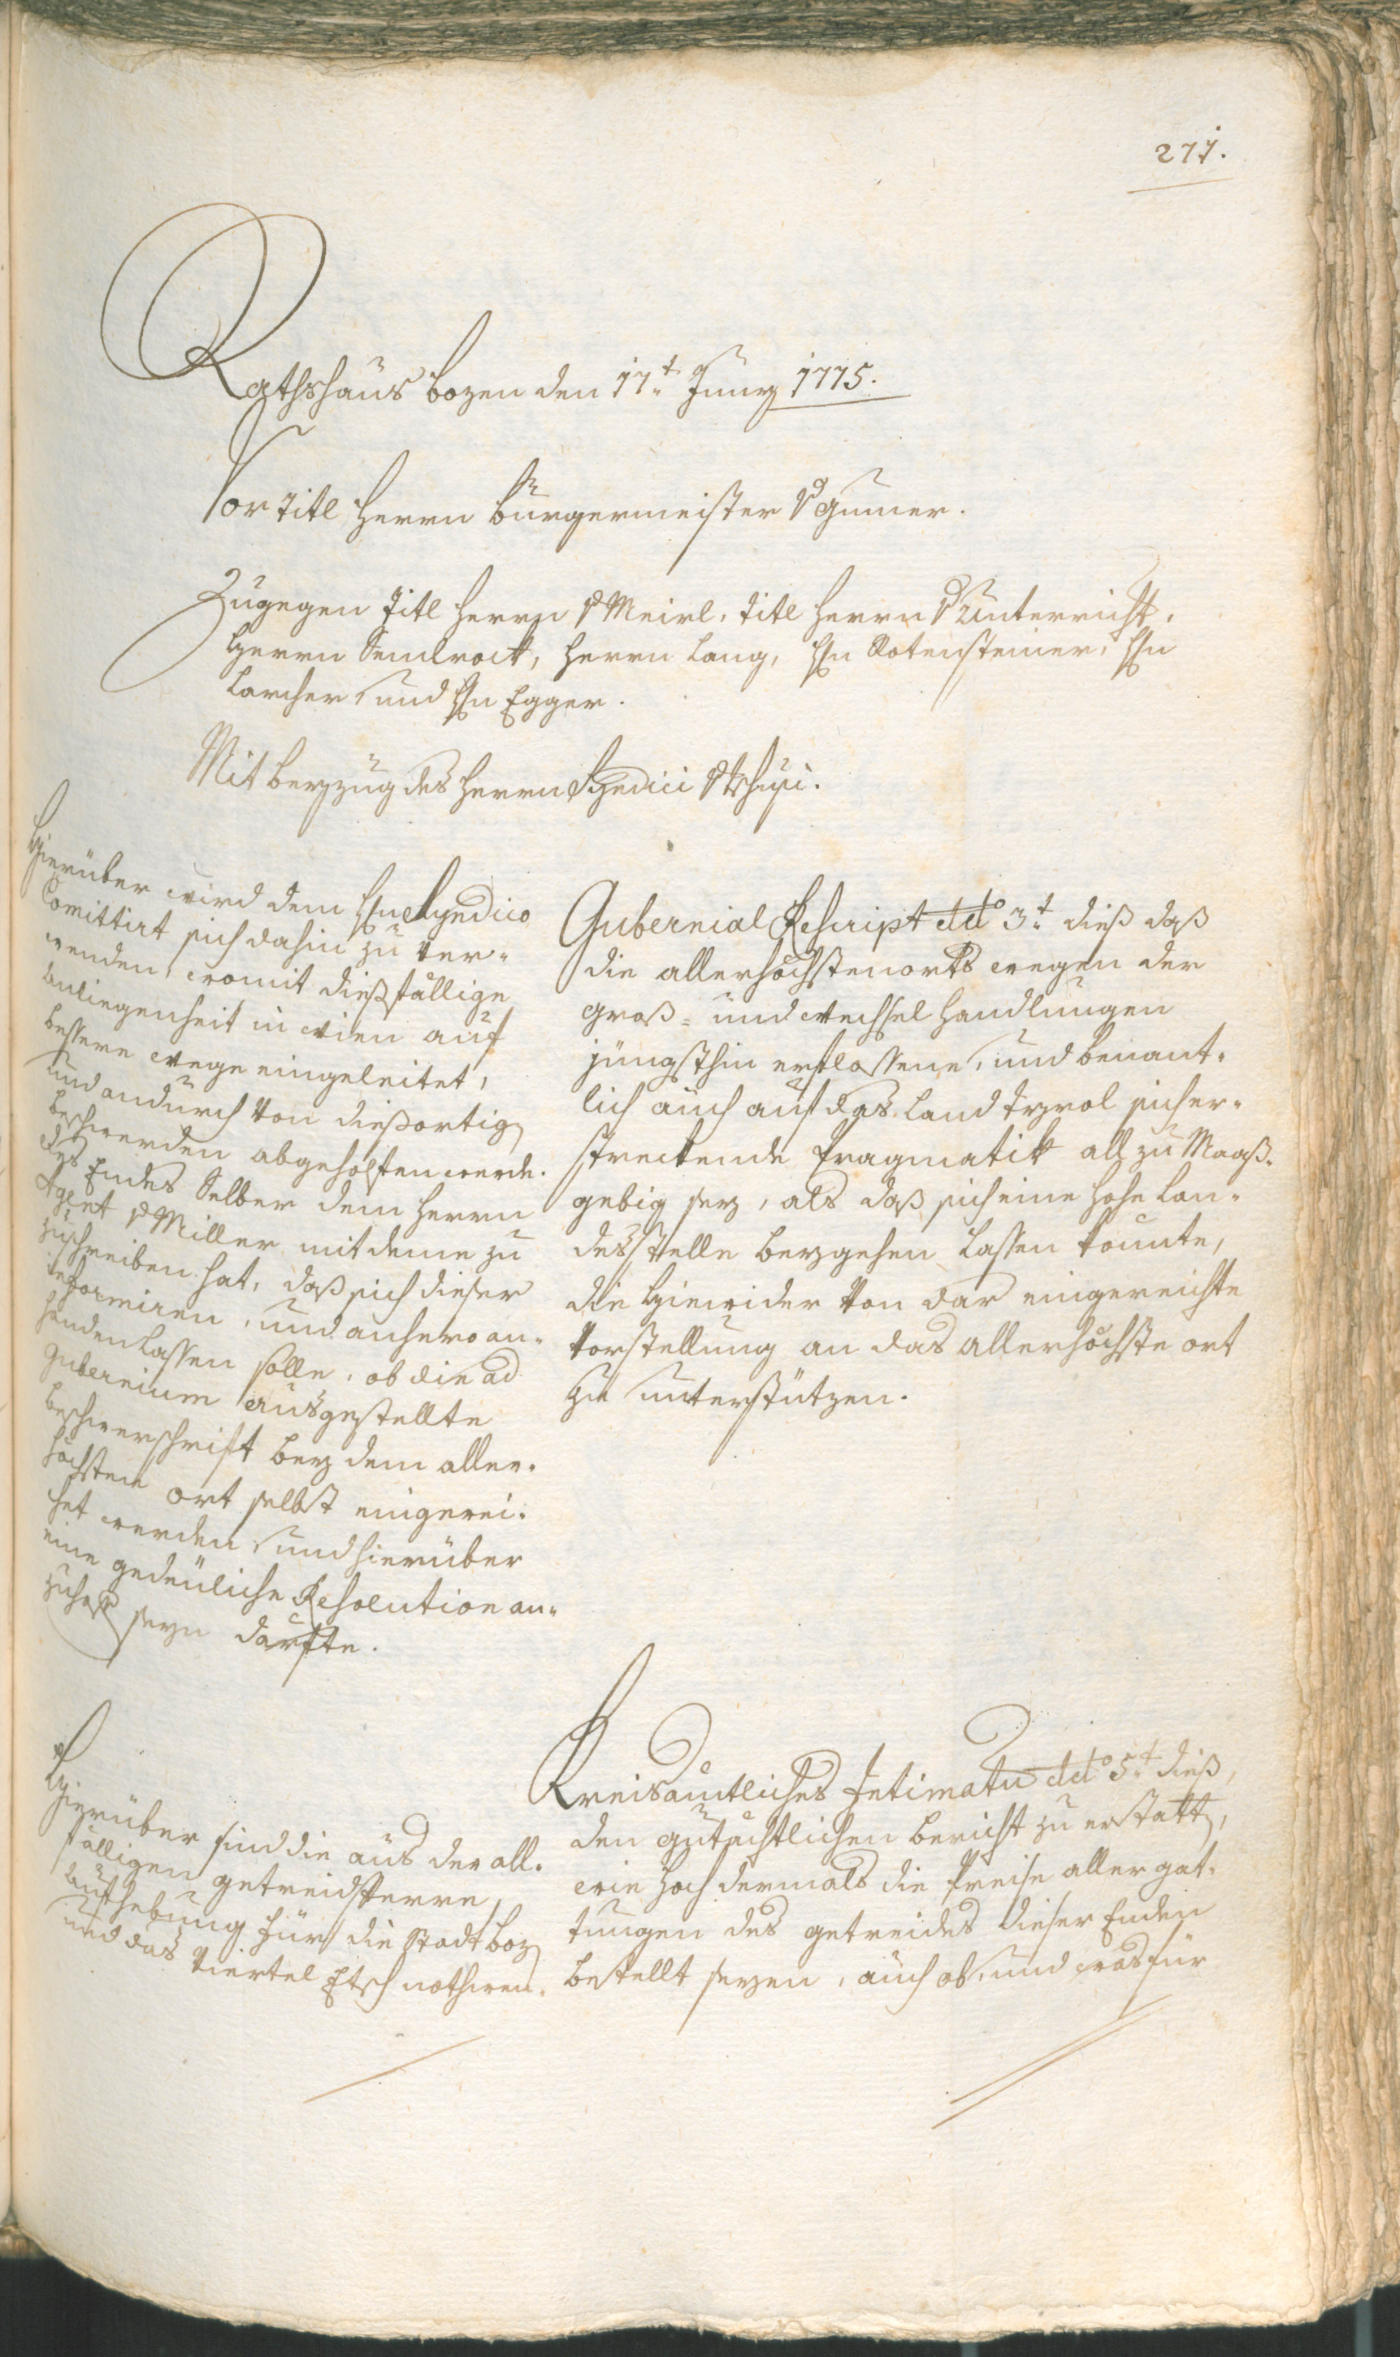 277.
Rathshaus bozen den 17t. Juny 1775.
Vor titl Herrn burgermeister v Gumer.
Zugegen titl Herrn v Meirl, titl Herrn v Unterricht,
Herrn Sendroct, Herrn Lang, Hn Rotensteiner, Hn
Larcher, und Hn Egger.
Mit beyzug des Herrn Syndici
Hierüber wird dem Hn Syndico
Comittirt sich dahin zu ver-
wenden, womit dießfällige
anliegenheit in wien auf
bessere wege eingeleitet,
und andurch von dießortig
beschwerden abgeholfen werde.
des Endes Selber dem Herrn
Agent v Miller mit deme zu
zuschreiben hat, daß sich dieser
informiren, und anhero an-
handen lassen solle, ob die ad
gubernium ausgestellte
beschwerschrift bey dem aller-
höchsten ort selbst eingerei-
chet werden, und hierüber
eine gedeuliche Resolution an-
zuhof seyn darfte.
Gubernial Rescript ddo 3t. dieß daß
die allerhöchstenorts wegen der
groß- und wechsel handlungen
jüngsthin erflossene, und benant-
lich auch auf das Land tyrol sich er-
streckende Pragmatik all zu Maaß-
gebig sey, als daß sich eine hohe Lan-
desstelle beygehen lassen könnte,
die hierwider von dar eingereichte
vorstellung an das allerhöchste ort
zu unterstützen.
Hierüber sind die aus der all-
fälligen getreidsperre
aufhebung für die Stadt boz
und das viertel Etsch nothwen-
Kreisamtliches Intimatu ddo 5t. dieß,
den gutachtlichen bericht zu erstatt,
wie hoch dermals die Preise aller gat-
tungen des getreides dieser Enden
bestellt seyen, auch ob, und was für